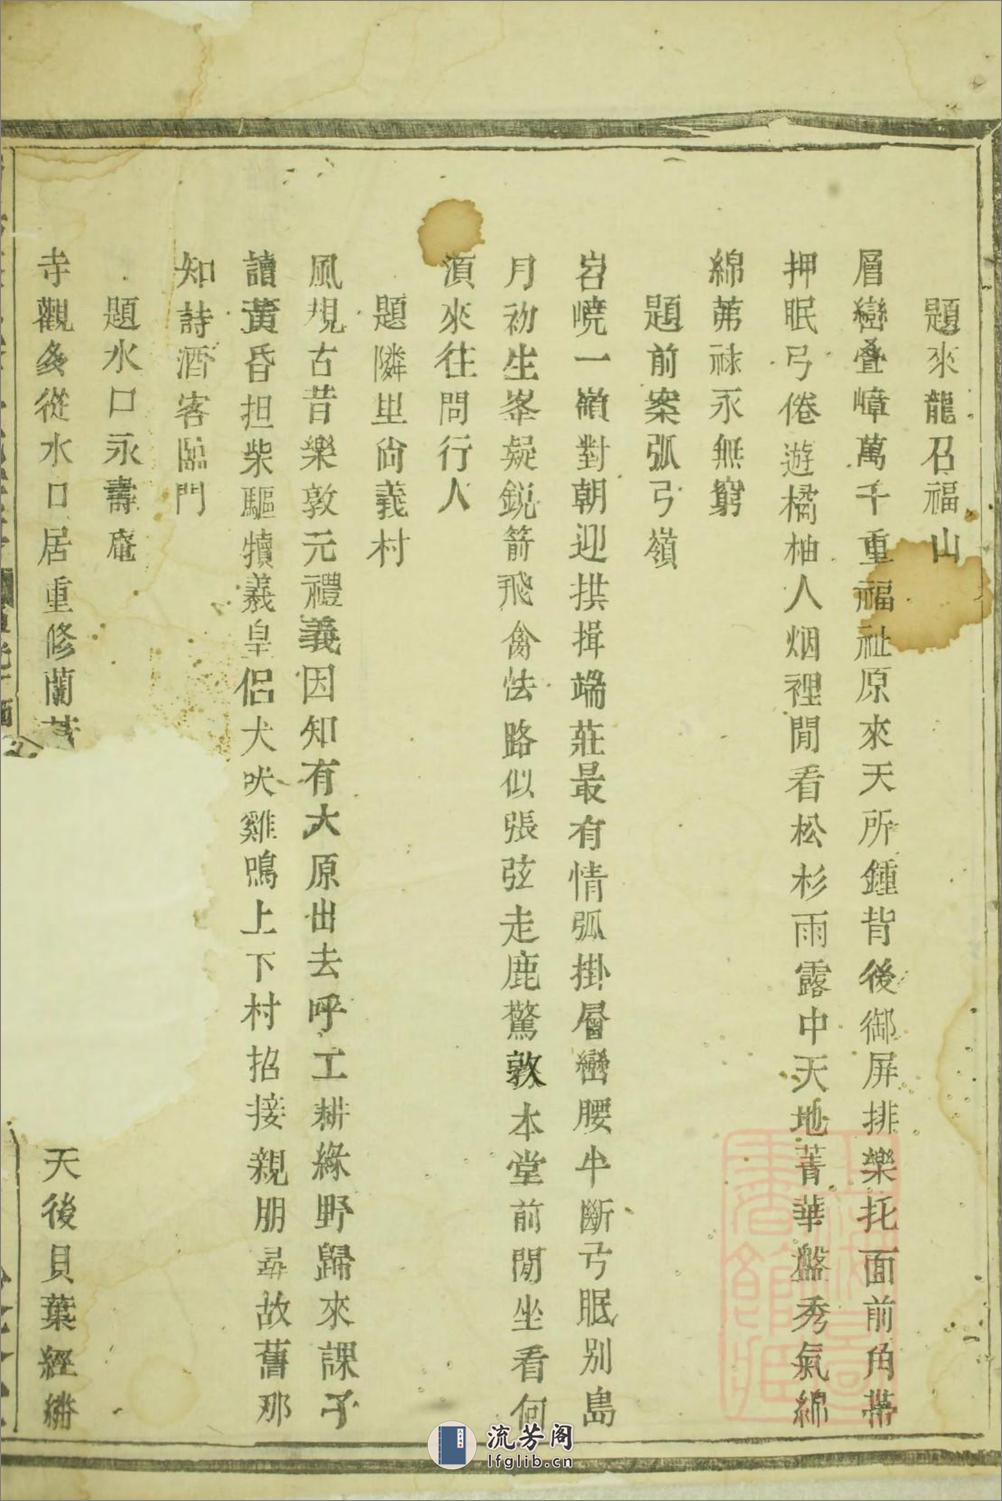 題來龍召福山
層巒叠嶂萬千重福祉原來天所鍾背後御屏排樂托面前角帶
押眠弓倦遊橘柚人烟裡閒看松杉雨露中天地菁華盤秀氣綿
綿茀祿永無窮
題前案弧弓嶺
岧嶢一嶺對朝迎拱揖端莊最有情弧掛層巒腰半斷弓眠别島
月初生峯疑銳箭飛禽怯路似張弦走鹿驚敦本堂前閒坐看何
湏來往問行人
題隣里尙義村
風規古昔樂敦元禮義因知有大原出去呼工耕綠野歸來課子
讀黃昏担柴驅犢羲皇侣犬吠雞鳴上下村招接親朋尋故舊那
知詩酒客臨門
題水口永壽庵
寺觀多從水口居重修蘭
天後貝葉經繙
流芳阁
lfglib.cn